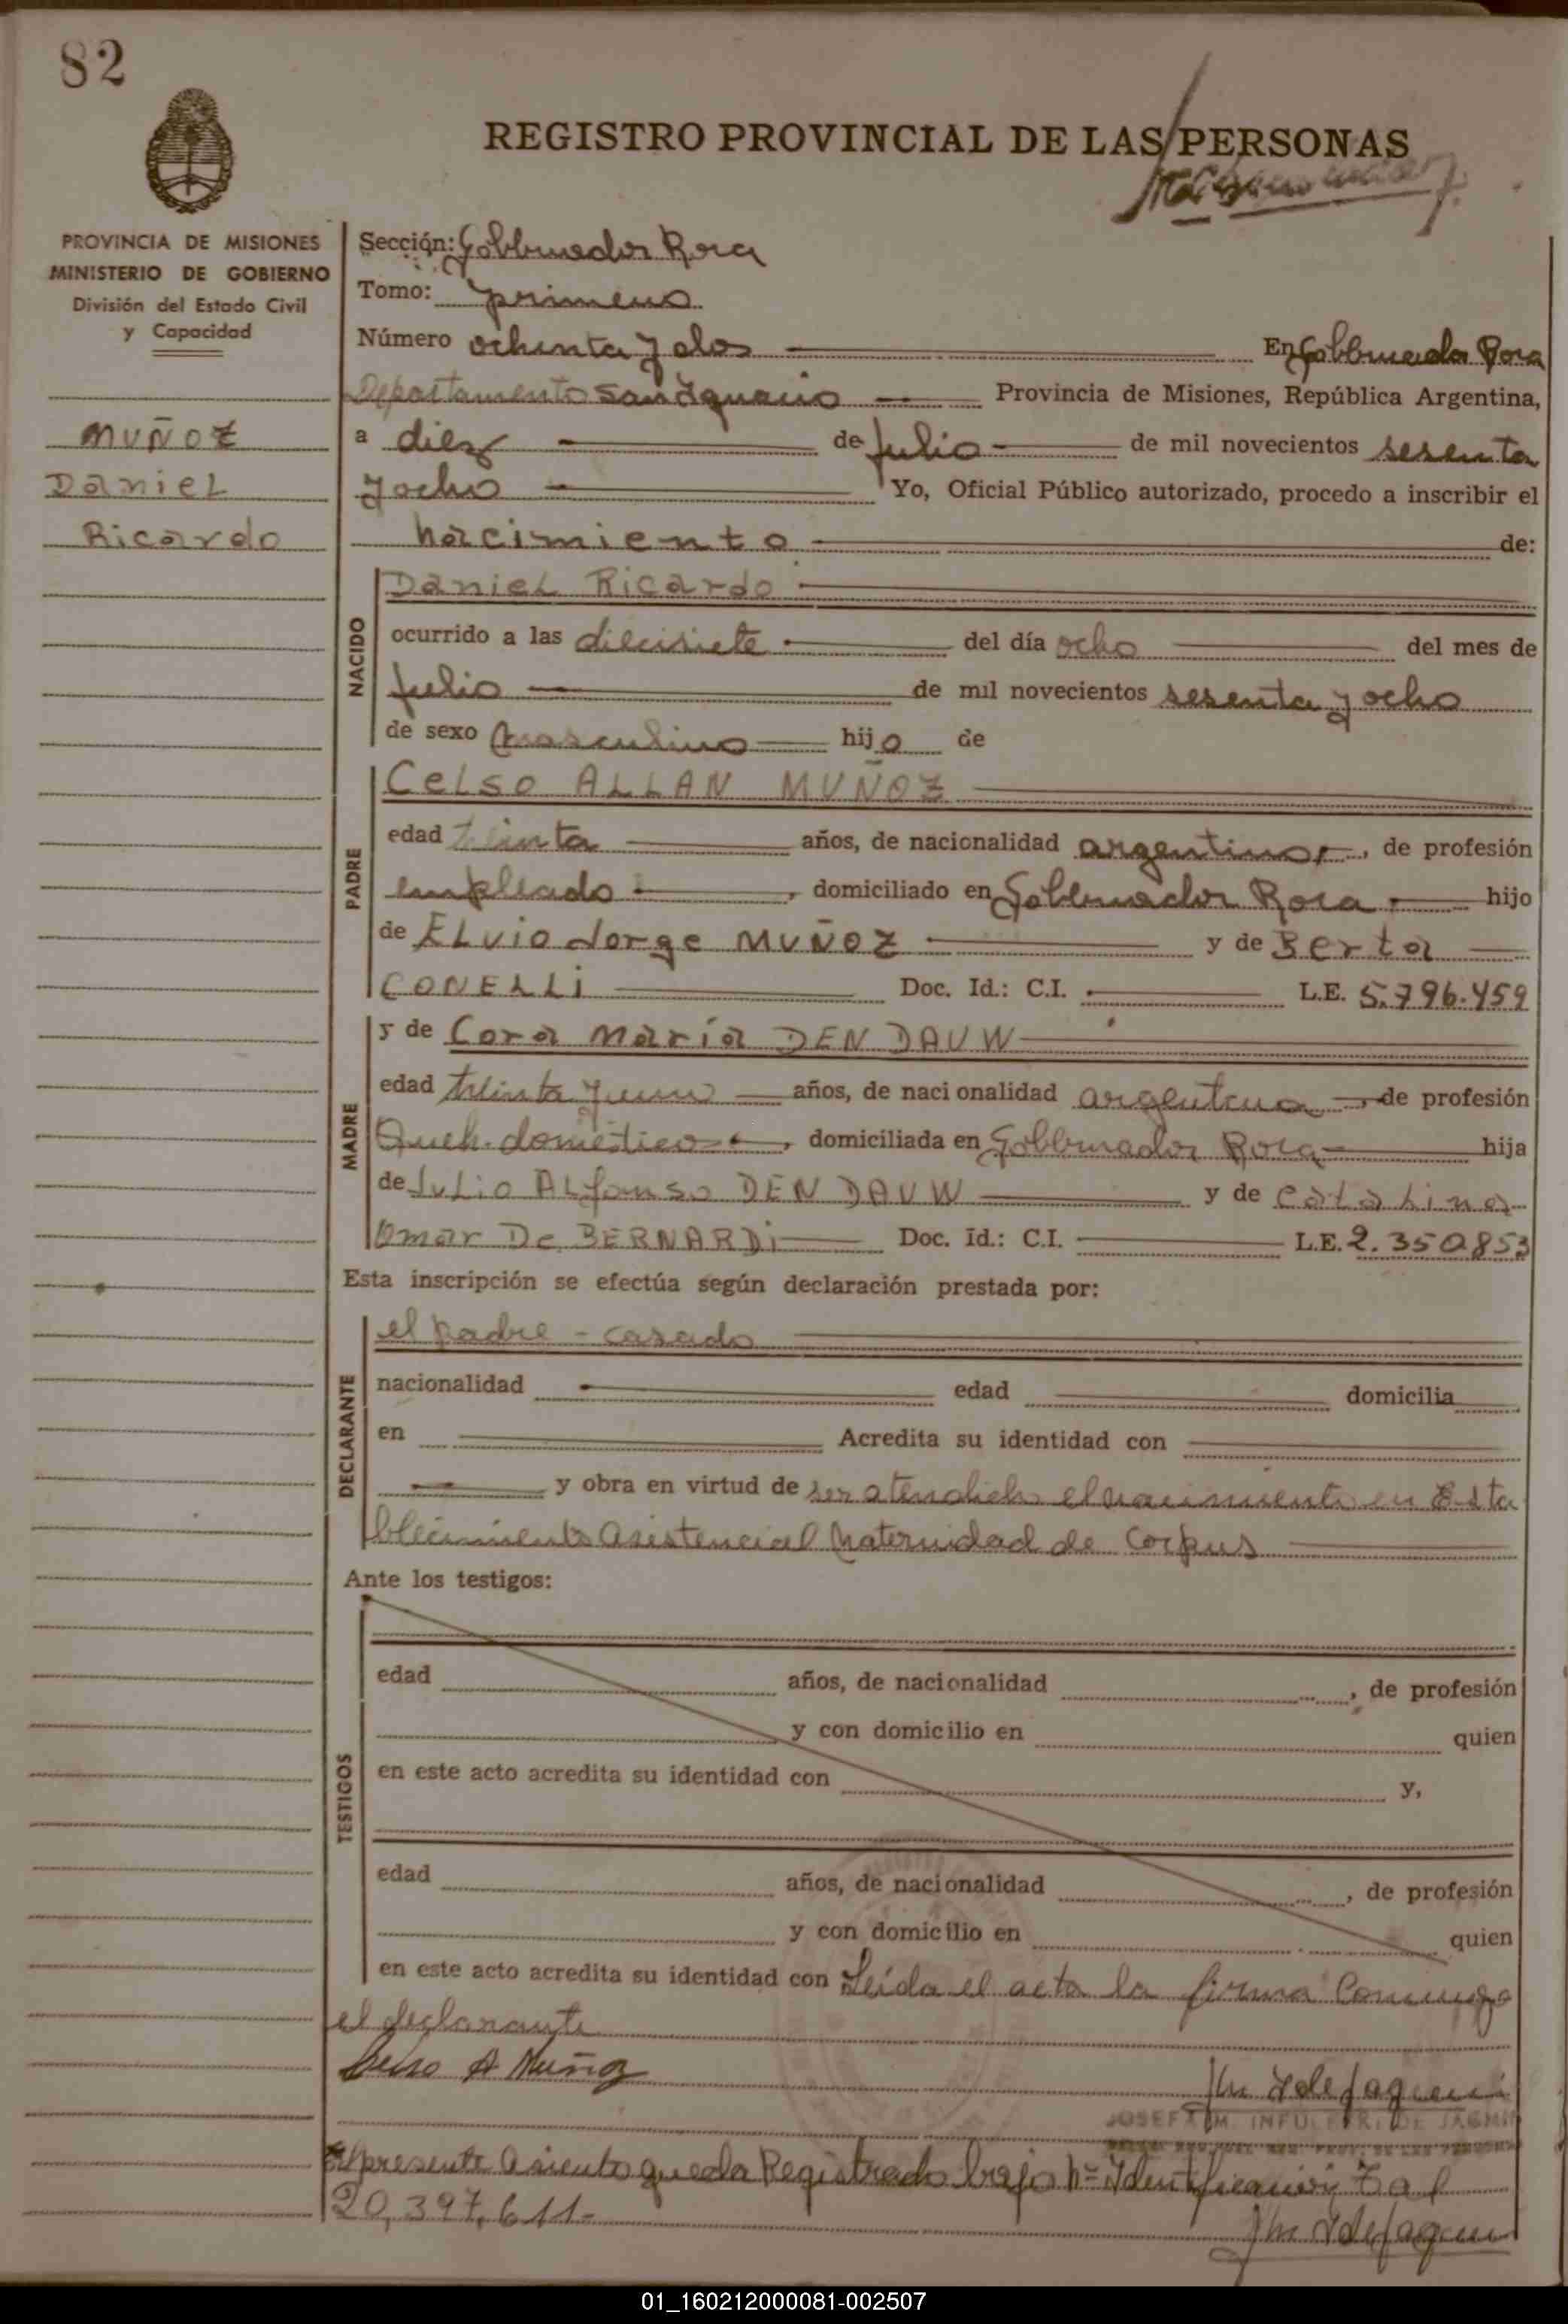 82
REGISTRO PROVINCIAL DE LAS PERSONAS
PROVINCIA DE MISIONES
MINISTERIO DE GOBIERNO
División del Estado Civil
y Capacidad
MUÑOZ
Daniel
Ricardo
Sección: Gobbernador Roca
Tomo: primero
Número ochenta y dos En Gobbernador Roca
Departamento San Ignacio Provincia de Misiones, República Argentina,
a diez de Julio de mil novecientos sesenta
y ocho Yo, Oficial Público autorizado, procedo a inscribir el
nacimiento de:
NACIDO
Daniel Ricardo
ocurrido a las diecisiete del día ocho del mes de
Julio de mil novecientos sesenta y ocho
de sexo masculino hijo de
PADRE
Celso ALLAN MUÑOZ
edad treinta años, de nacionalidad argentino, de profesión
empleado, domiciliado en Gobbernador Roca hijo
de Elvio Jorge MUÑOZ y de Berta
CONELLI Doc. Id.: C.I. L.E. 5.796.459
MADRE
y de Cora María DEN DAUW
edad treinta y uno años, de nacionalidad argentina, de profesión
Queh. doméstico, domiciliada en Gobbernador Roca hija
de Julio Alfonso DEN DAUW y de Catalina
Omar De BERNARDI Doc. Id.: C.I. L.E. 2.350.853
Esta inscripción se efectúa según declaración prestada por:
DECLARANTE
el padre - casado
nacionalidad edad domicilia
en Acredita su identidad con
y obra en virtud de ser atendido el nacimiento en Esta
blecimiento asistencial Maternidad de Corpus
Ante los testigos:
TESTIGOS
edad años, de nacionalidad, de profesión
y con domicilio en quien
en este acto acredita su identidad con y,
edad años, de nacionalidad, de profesión
y con domicilio en quien
en este acto acredita su identidad con Leída el acta la firma conmigo
el declarante
Celso A Muñoz
JOSEFA M. DE
El presente asiento queda Registrado bajo Nº Identificación
20,397,611-
01_160212000081-002507